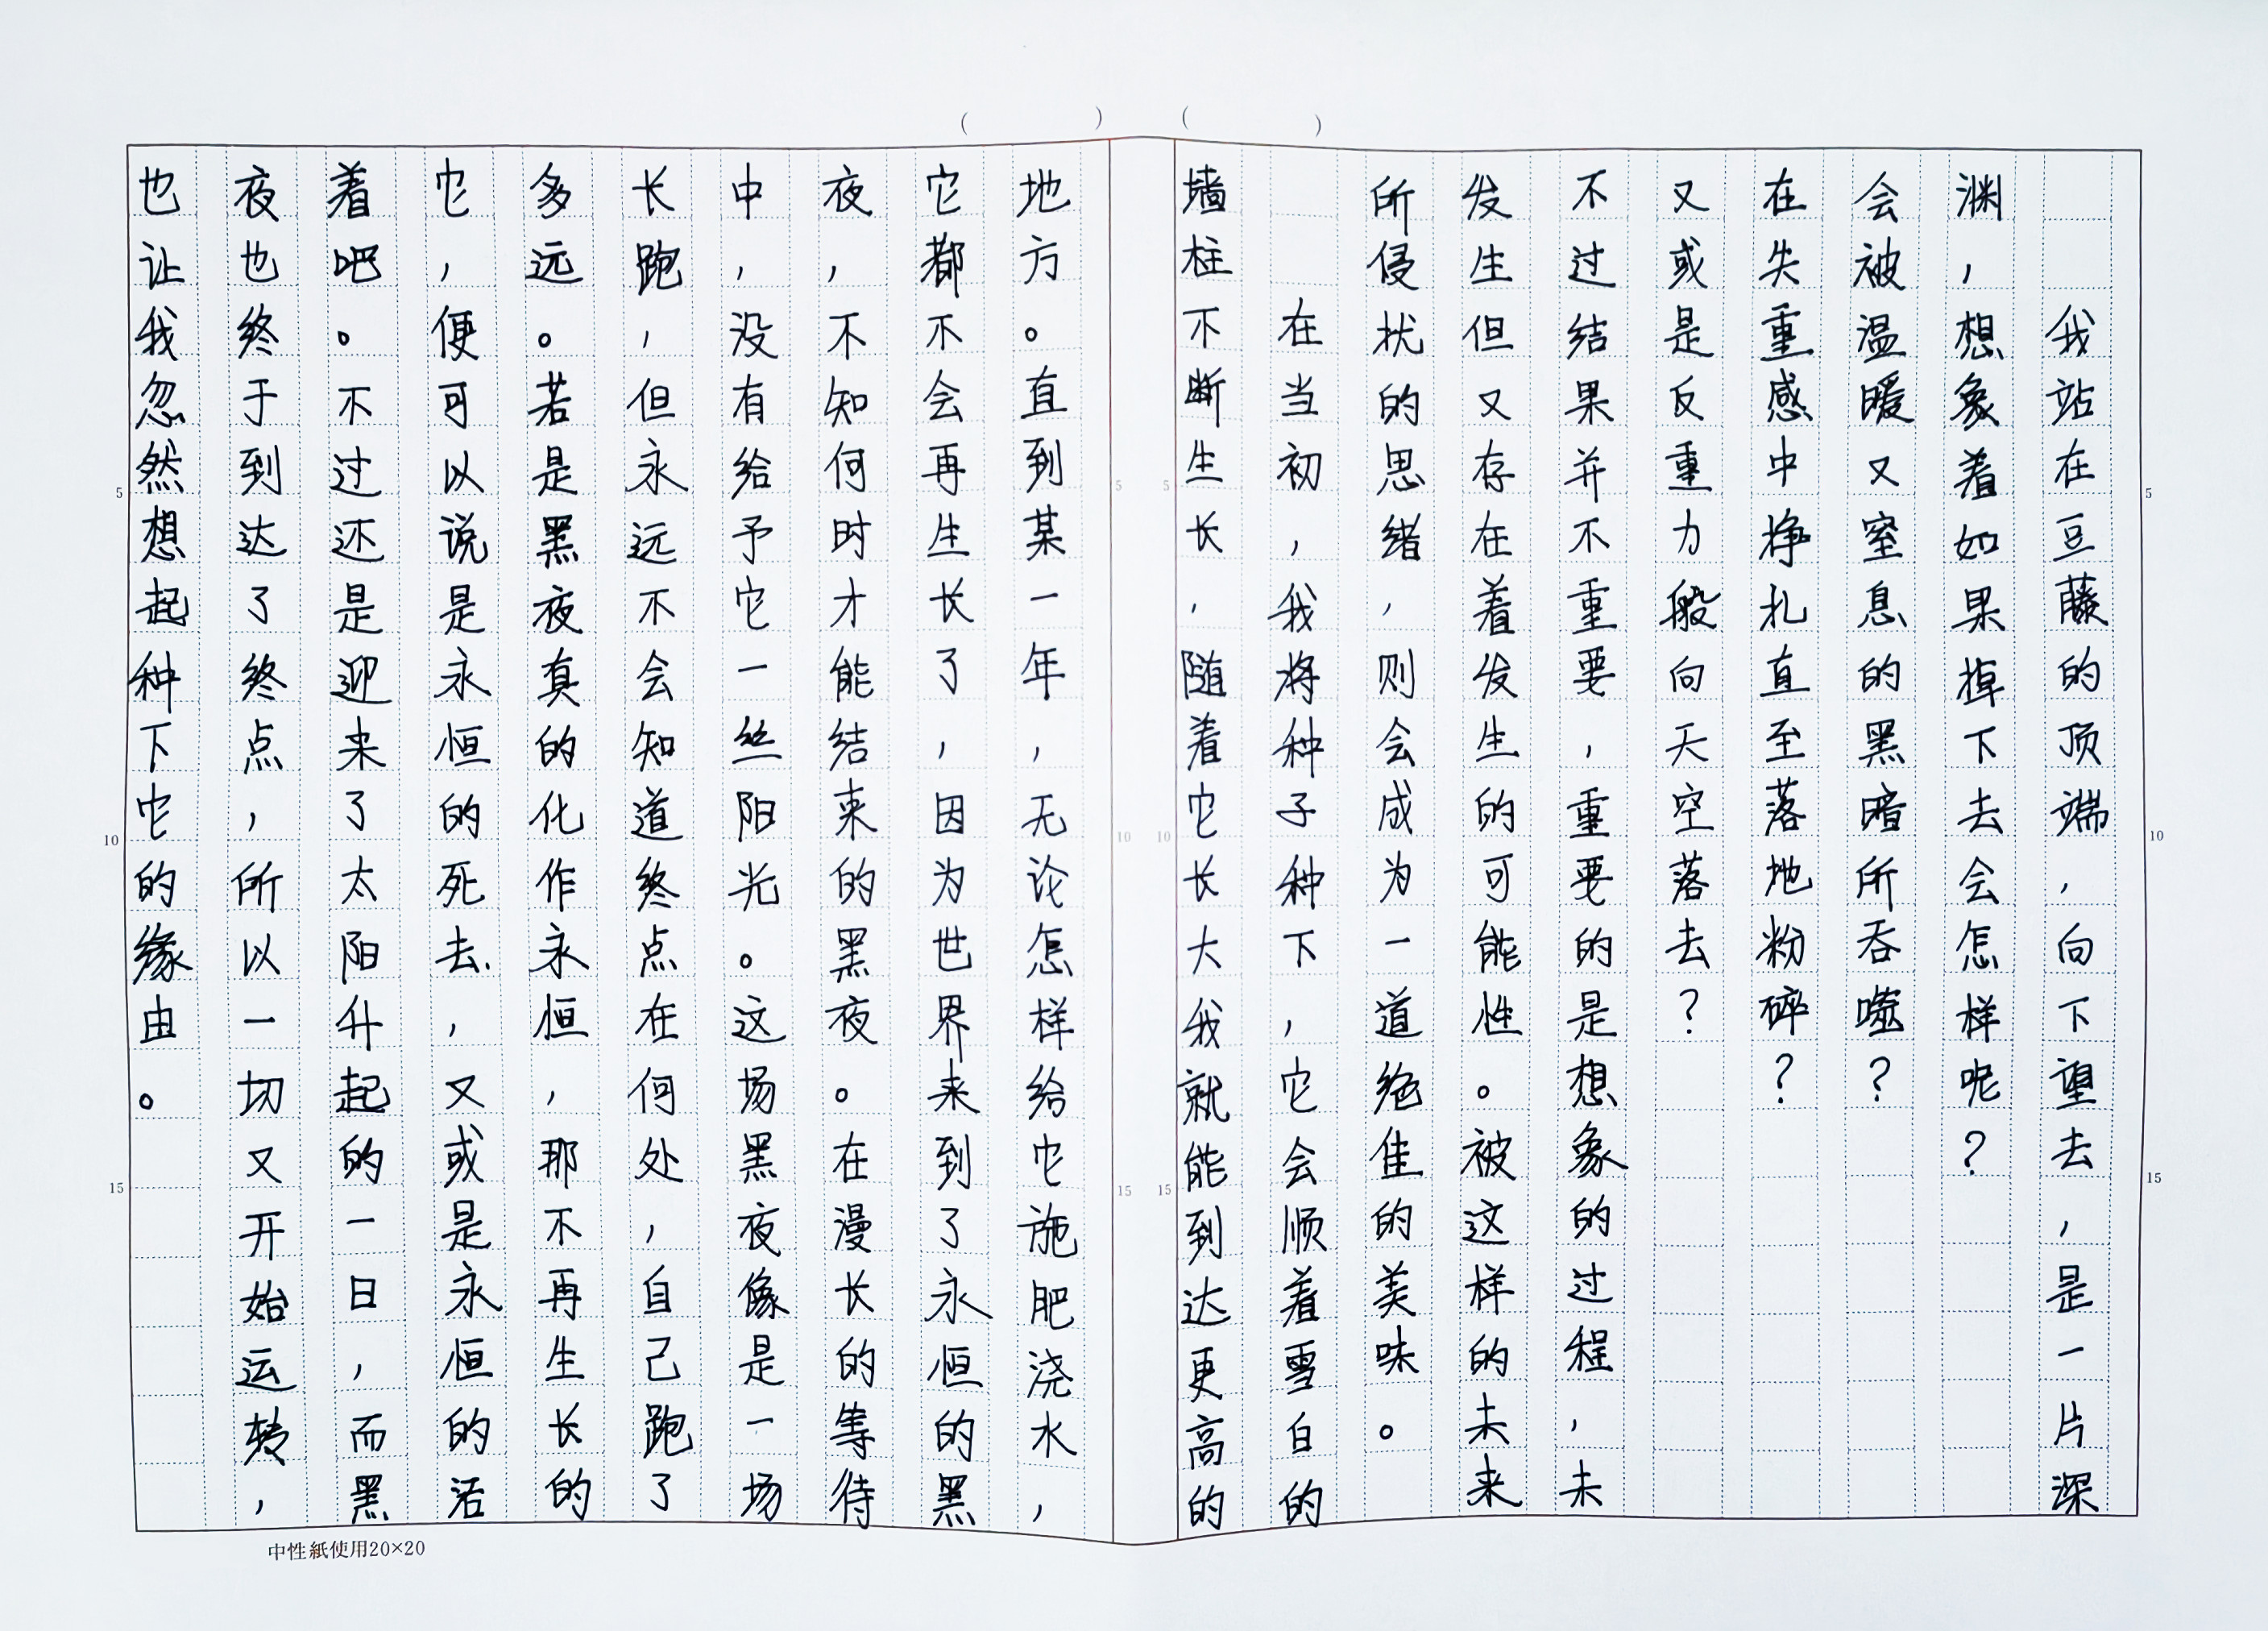 我站在豆藤的顶端，向下望去，是一片深
渊，想象着如果掉下去会怎样呢？
会被温暖又窒息的黑暗所吞噬？
在失重感中挣扎直至落地粉碎？
又或是反重力般向天空落去？
不过结果并不重要，重要的是想象的过程，未
发生但又存在着发生的可能性。被这样的未来
所侵扰的思绪，则会成为一道绝佳的美味。
在当初，我将种子种下，它会顺着雪白的
墙柱不断生长，随着它长大我就能到达更高的
地方。直到某一年，无论怎样给它施肥浇水，
它都不会再生长了，因为世界来到了永恒的黑
夜，不知何时才能结束的黑夜。在漫长的等待
中，没有给予它一丝阳光。这场黑夜像是一场
长跑，但永远不会知道终点在何处，自己跑了
多远。若是黑夜真的化作永恒，那不再生长的
它，便可以说是永恒的死去，又或是永恒的活
着吧。不过还是迎来了太阳升起的一日，而黑
夜也终于到达了终点，所以一切又开始运转，
也让我忽然想起种下它的缘由。
（ ）
（ ）
5
10
15
5
10
15
5
10
15
5
10
15
中性紙使用20×20